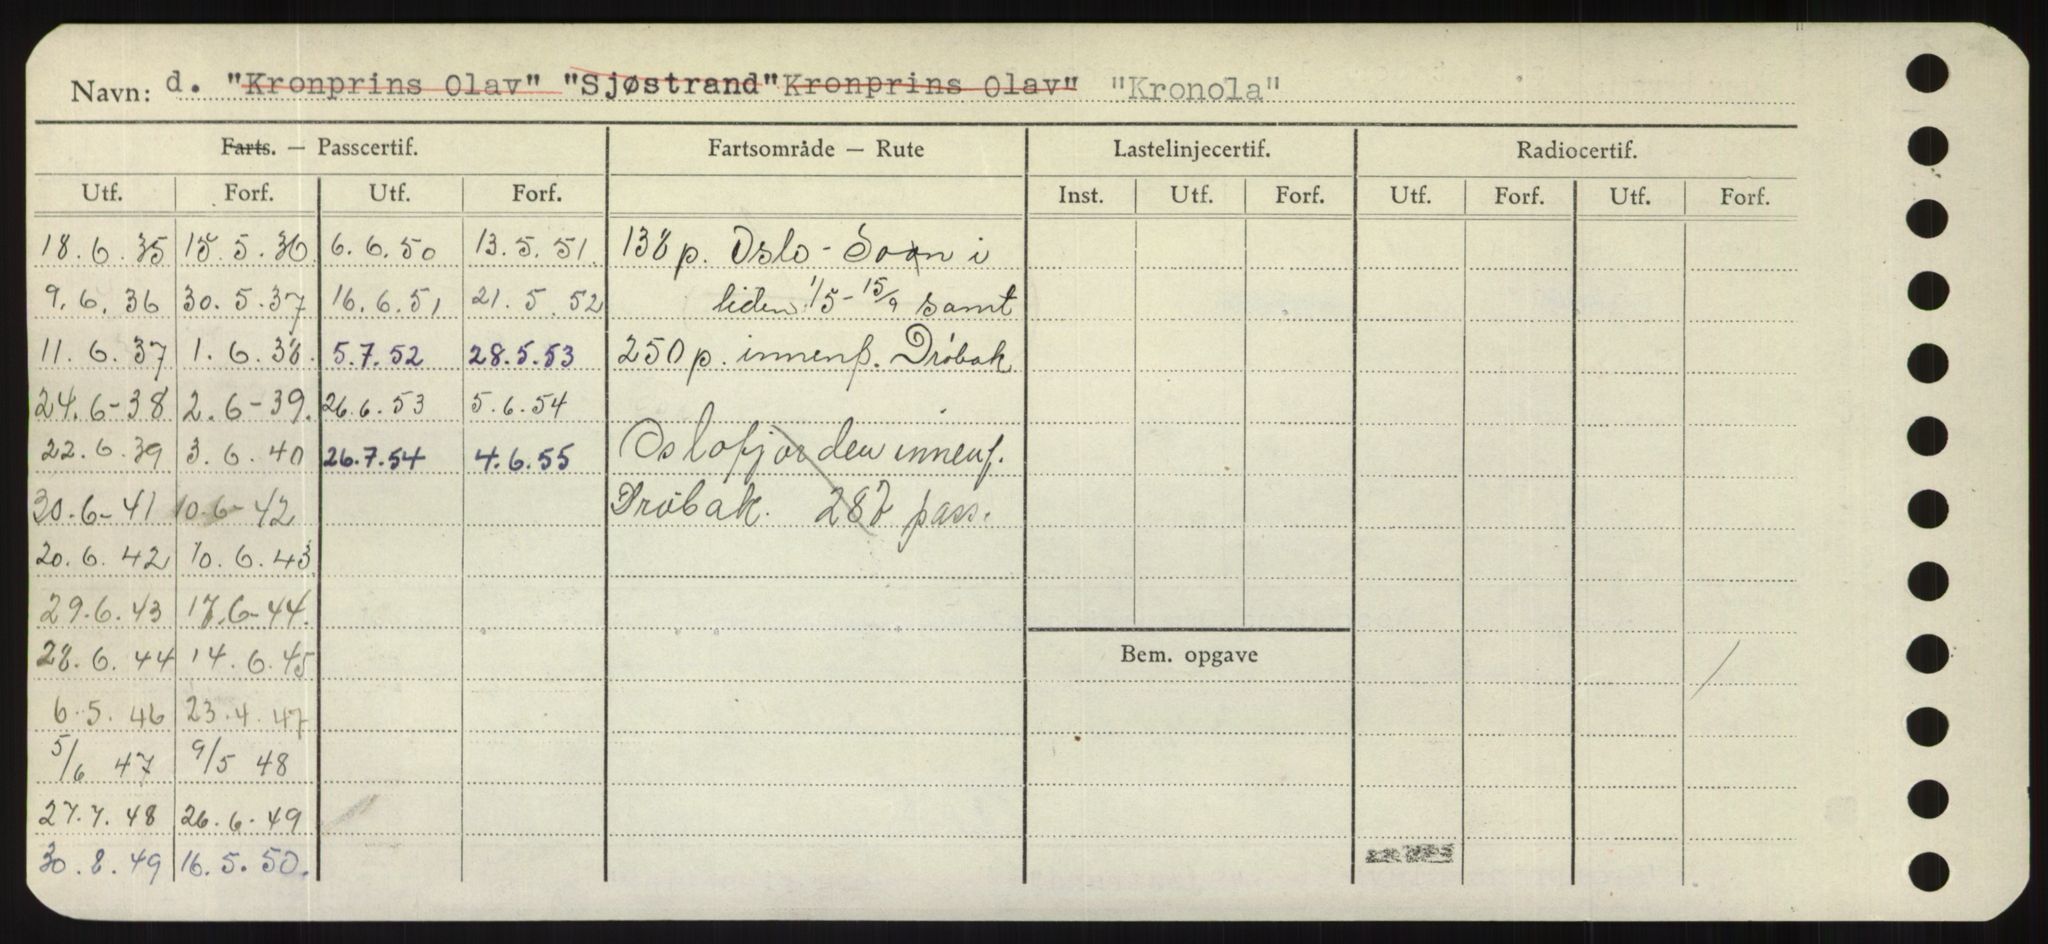 Navn: d. "Kronprins Olav" "Sjøstrand" Kronprins Olav" "Kronola"
Farts. — Passcertif. Fartsområde — Rute Lastelinjecertif. Radiocertif.
Utf. Forf. Utf. Forf. Inst. Utf. Forf. Utf. Forf. Utf. Forf.
18.6.35 15.5.36 6.6.50 13.5.51. 138 p. Oslo - Soon i
9.6.36 30.5.37 16.6.51 21.5.52 tiden 1/5 - 15/9 samt
11.6.37 1.6.38. 5.7.52 28.5.53 250 p. innenf. Drøbak
24.6-38 2.6-39. 26.6.53 5.6.54
22.6.39 3.6.40 26.7.54 4.6.55 Oslofjorden innenf.
30.6-41 10.6-42 Drøbak. 282 pass.
20.6.42 10.6.43
29.6.43 17.6-44.
28.6.44 14.6.45 Bem. opgave
6.5.46 23.4.47
5/6 47 9/5 48
27.7.48 26.6.49
30.8.49 16.5.50.